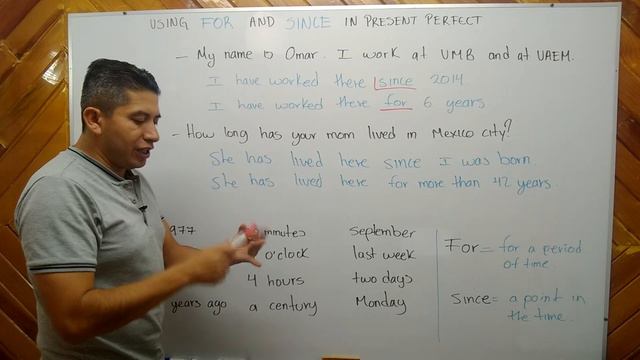 USING FOR AND SINCE IN PRESENT PERFECT
- My name is Omar. I work at UMB and at UAEM.
I have worked there since 2014
I have worked there for 6 years
- How long has your mom lived in Mexico city?
She has lived here since I was born.
She has lived here for more than 42 years.
977 minutes september
o'clock last week
4 hours two days
years ago a century Monday
For = for a period of time
Since = a point in the time.